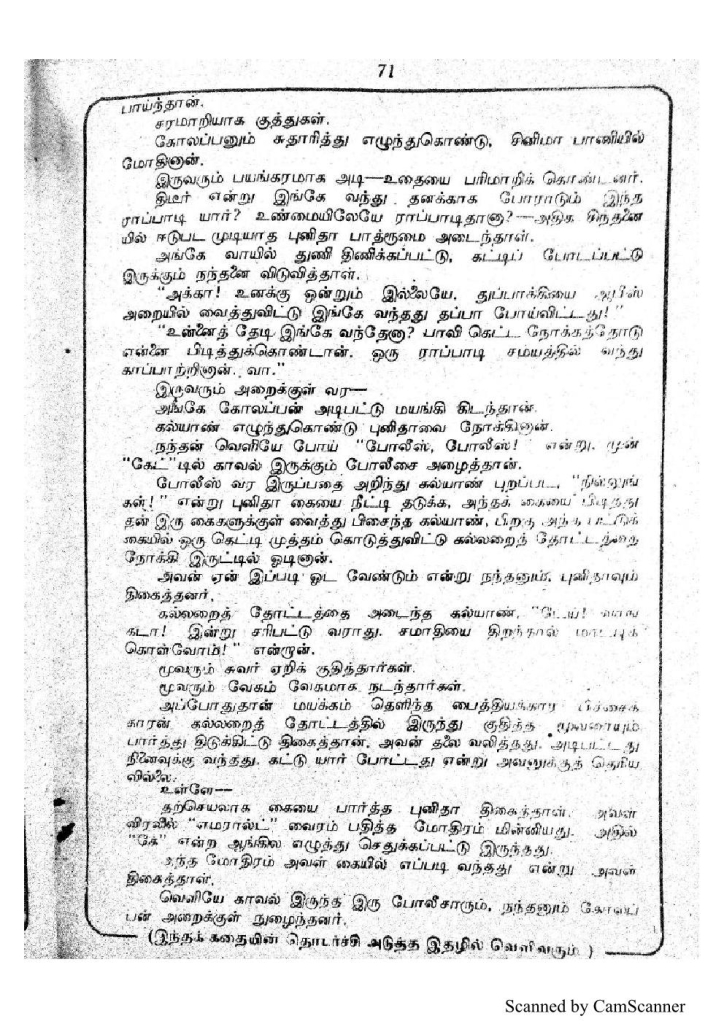 71
பாய்ந்தான்.
சரமாறியாக குத்துகள்.
கோலப்பனும் சுதாரித்து எழுந்துகொண்டு, சினிமா பாணியில்
மோதினான்.
இருவரும் பயங்கரமாக அடி—உதையை பரிமாறிக் கொண்டனர்.
திடீர் என்று இங்கே வந்து தனக்காக போராடும் இந்த
ராப்பாடி யார்? உண்மையிலேயே ராப்பாடிதானா?—அதிக சிந்தனை
யில் ஈடுபட முடியாத புனிதா பாத்ரூமை அடைந்தாள்.
அங்கே வாயில் துணி திணிக்கப்பட்டு, கட்டிப் போடப்பட்டு
இருக்கும் நந்தனை விடுவித்தாள்.
"அக்கா! உனக்கு ஒன்றும் இல்லையே. துப்பாக்கியை ஆபீஸ்
அறையில் வைத்துவிட்டு இங்கே வந்தது தப்பா போய்விட்டது!"
"உன்னைத் தேடி இங்கே வந்தேனா? பாவி கெட்ட நோக்கத்தோடு
என்னை பிடித்துக்கொண்டான். ஒரு ராப்பாடி சமயத்தில் வந்து
காப்பாற்றினான். வா."
இருவரும் அறைக்குள் வர—
அங்கே கோலப்பன் அடிபட்டு மயங்கி கிடந்தான்.
கல்யாண் எழுந்துகொண்டு புனிதாவை நோக்கினான்.
நந்தன் வெளியே போய் "போலீஸ், போலீஸ்!" என்று. முன்
"கேட்"டில் காவல் இருக்கும் போலீசை அழைத்தான்.
போலீஸ் வர இருப்பதை அறிந்து கல்யாண் புறப்பட, "நில்லுங்
கள்!" என்று புனிதா கையை நீட்டி தடுக்க, அந்தக் கையை பிடித்து
தன் இரு கைகளுக்குள் வைத்து பிசைந்த கல்யாண், பிறகு அந்த பட்டுக்
கையில் ஒரு கெட்டி முத்தம் கொடுத்துவிட்டு கல்லறைத் தோட்டத்தை
நோக்கி இருட்டில் ஓடினான்.
அவன் ஏன் இப்படி ஓட வேண்டும் என்று நந்தனும், புனிதாவும்
திகைத்தனர்.
கல்லறைத் தோட்டத்தை அடைந்த கல்யாண், "டேய்! வாங்
கடா! இன்று சரிபட்டு வராது. சமாதியை திறந்தால் மாட்டிக்
கொள்வோம்!" என்றான்.
மூவரும் சுவர் ஏறிக் குதித்தார்கள்.
மூவரும் வேகம் வேகமாக நடந்தார்கள்.
அப்போதுதான் மயக்கம் தெளிந்த பைத்தியக்கார பிச்சைக்
காரன் கல்லறைத் தோட்டத்தில் இருந்து குதித்த மூவரையும்
பார்த்து திடுக்கிட்டு திகைத்தான். அவன் தலை வலித்தது. அடிபட்டது
நினைவுக்கு வந்தது. கட்டு யார் போட்டது என்று அவனுக்குத் தெரிய
வில்லை.
உள்ளே—
தற்செயலாக கையை பார்த்த புனிதா திகைத்தாள். அவள்
விரலில் "எமரால்ட்" வைரம் பதித்த மோதிரம் மின்னியது. அதில்
"கே" என்ற ஆங்கில எழுத்து செதுக்கப்பட்டு இருந்தது.
அந்த மோதிரம் அவள் கையில் எப்படி வந்தது என்று அவள்
திகைத்தாள்.
வெளியே காவல் இருந்த இரு போலீசாரும், நந்தனும் கோலப்
பன் அறைக்குள் நுழைந்தனர்.
(இந்தக் கதையின் தொடர்ச்சி அடுத்த இதழில் வெளிவரும்)
Scanned by CamScanner